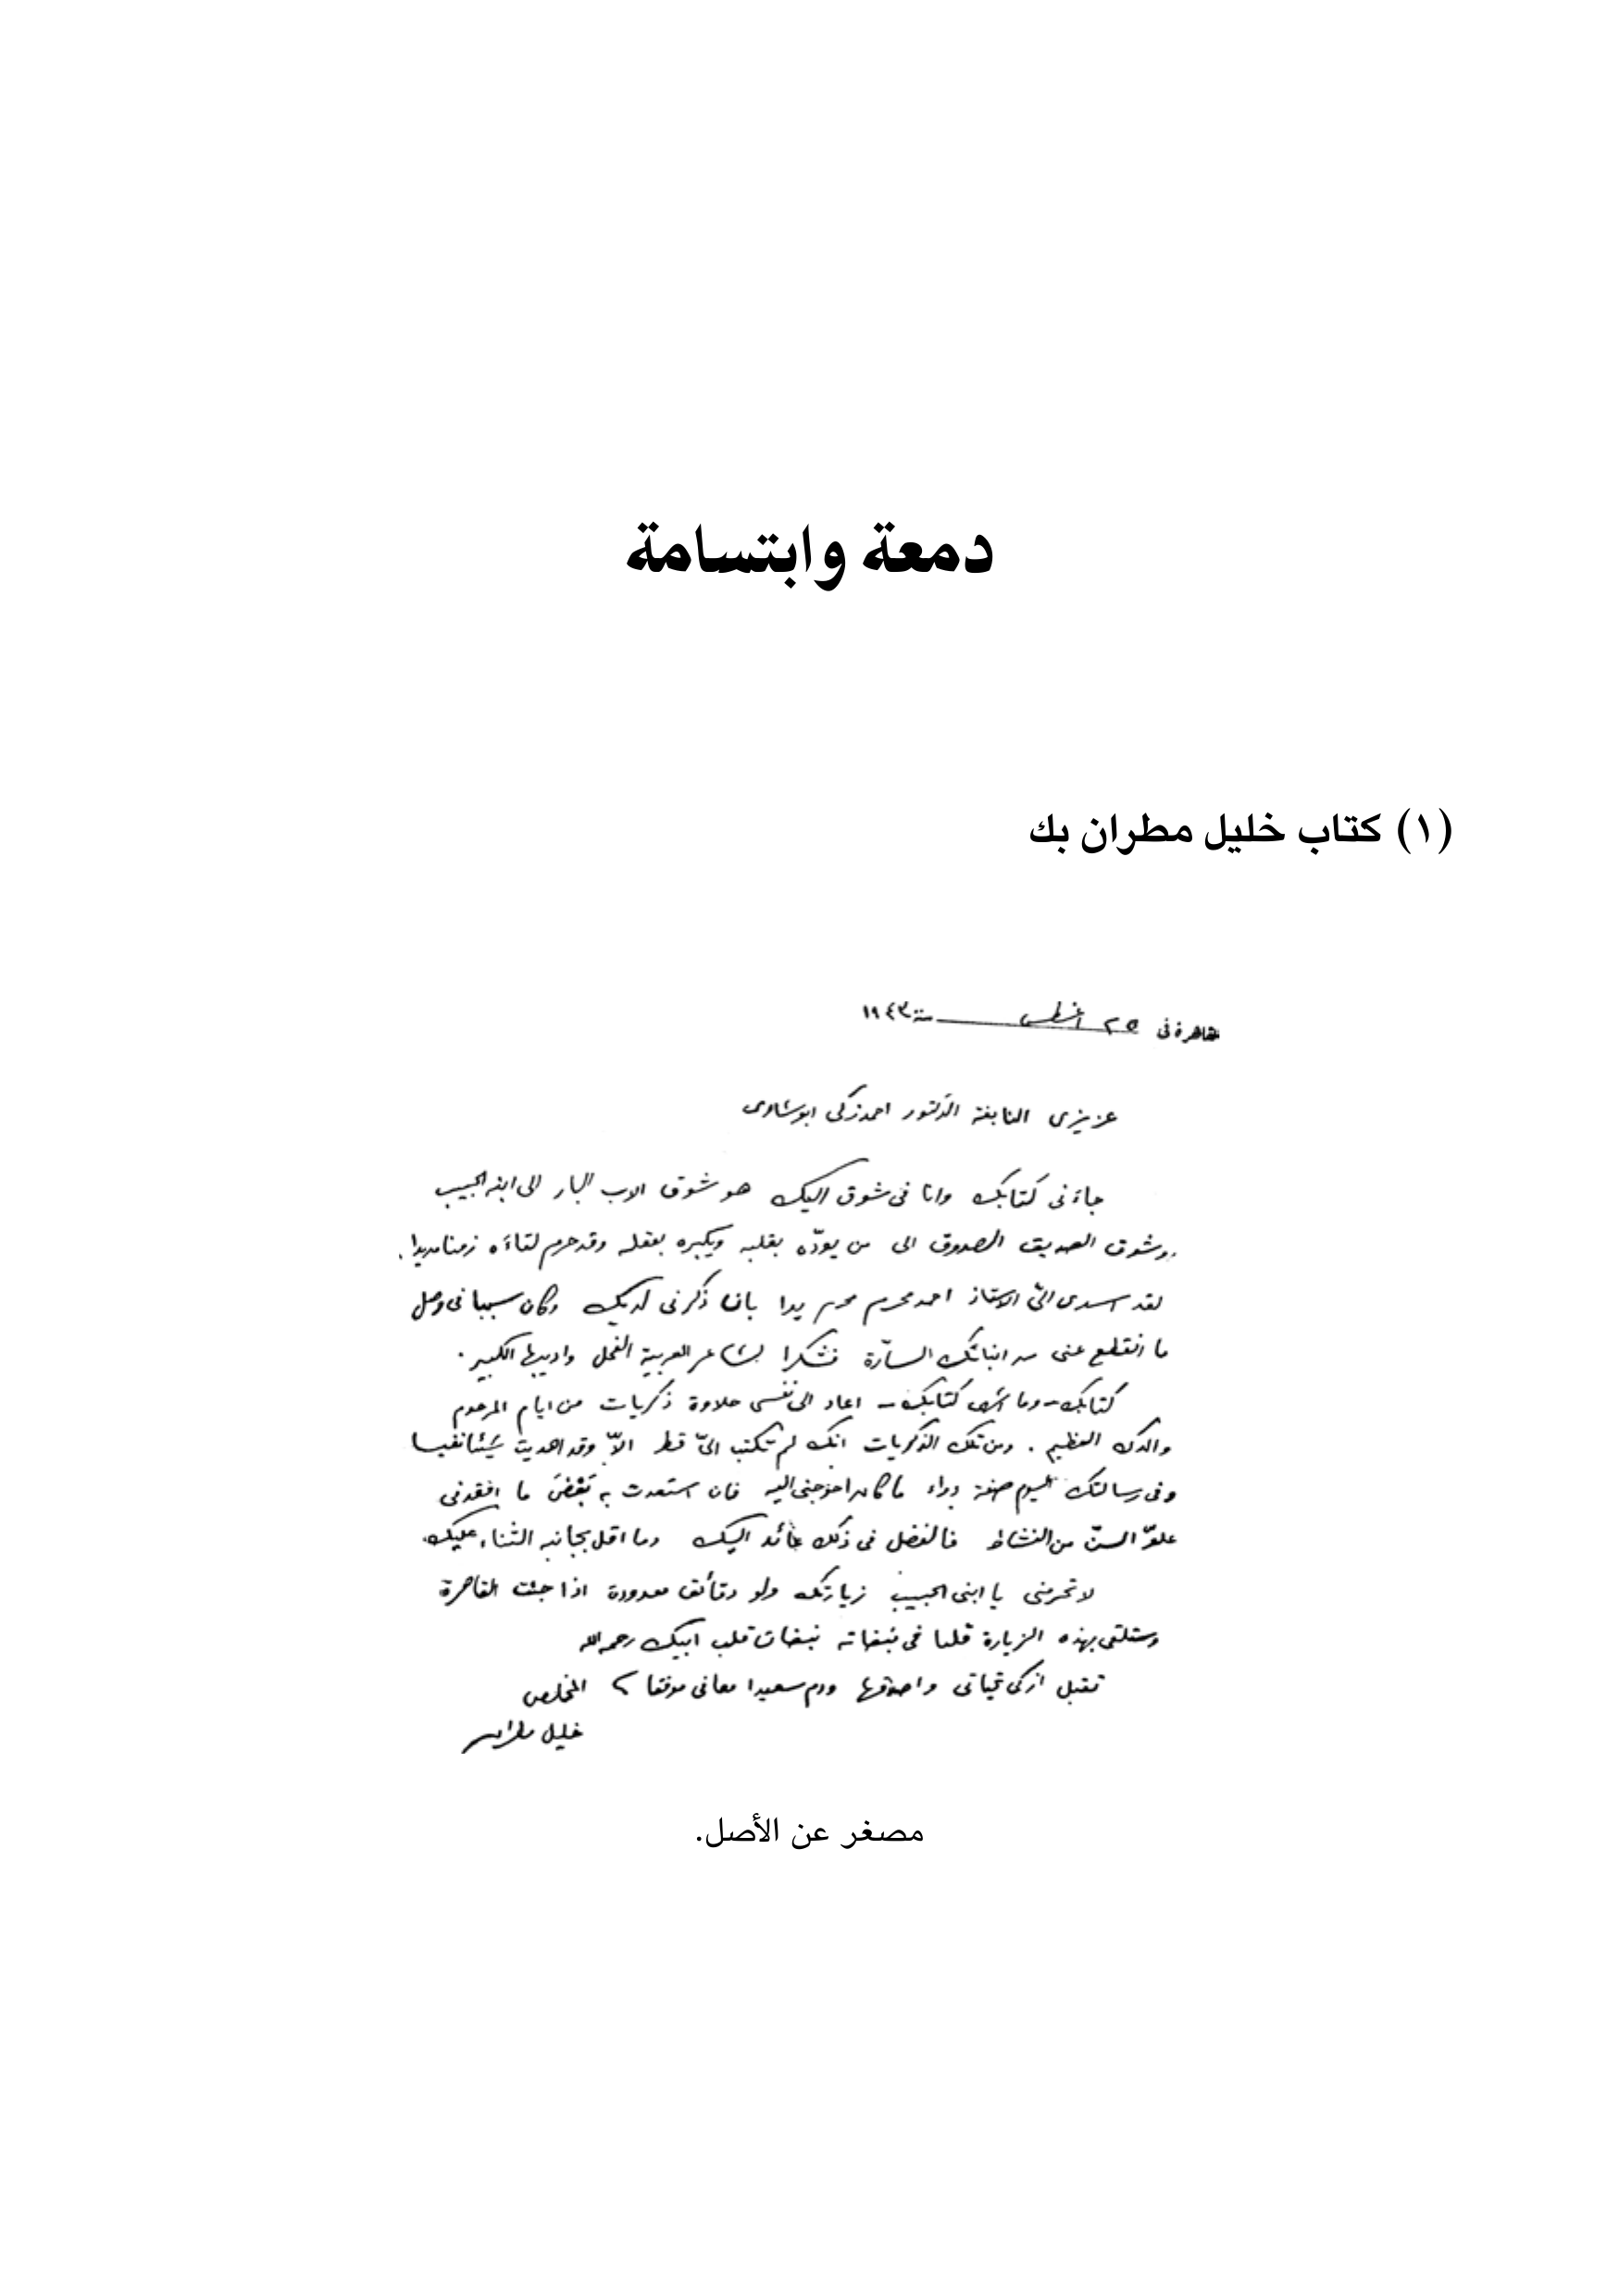 دمعة وابتسامة
(١) كتاب خليل مطران بك
القاهرة في ٢٥ أغسطس سنة ١٩٤٣
عزيزى النابغة الدكتور احمد زكى ابو شادى
جاءنى كتابك وانا فى شوق اليك هو شوق الاب البار الى ابنه الحبيب
وشوق الصديق الصدوق الى من يودّه بقلبه ويكبره بعقله وقد حرم لقاءه زمنا مديدا.
لقد اسدى الىّ الاستاذ احمد محرم يدا بان ذكرنى لديك وكان سببا فى وصل
ما انقطع عنى من انبائك السارّة فشكرا لشاعر العربية الفحل واديبها الكبير.
كتابك - وما اشهى كتابك - اعاد الى نفسى حلاوة ذكريات من ايام المرحوم
والدك العظيم. ومن تلك الذكريات انك لم تكتب الىّ قط الاّ وقد اهديت شيئا نفيسا
وفى رسالتك اليوم صفة دواء ما كان احوجنى اليه فان استعدت به بَعْضَ ما افقدنى
علوّ السنّ من النشاط فالفضل فى ذلك عائد اليك وما اقل بجانبه الثناء عليك.
لا تحرمنى يا ابنى الحبيب زيارتك ولو دقائق معدودة اذا جئت القاهرة
وستلقى بهذه الزيارة قلبا فى نبضاته نبضات قلب ابيك رحمه الله
تقبل ازكى تحياتى واصدقها ودم سعيدا معافى موفقا المخلص
خليل مطران
مصغر عن الأصل.